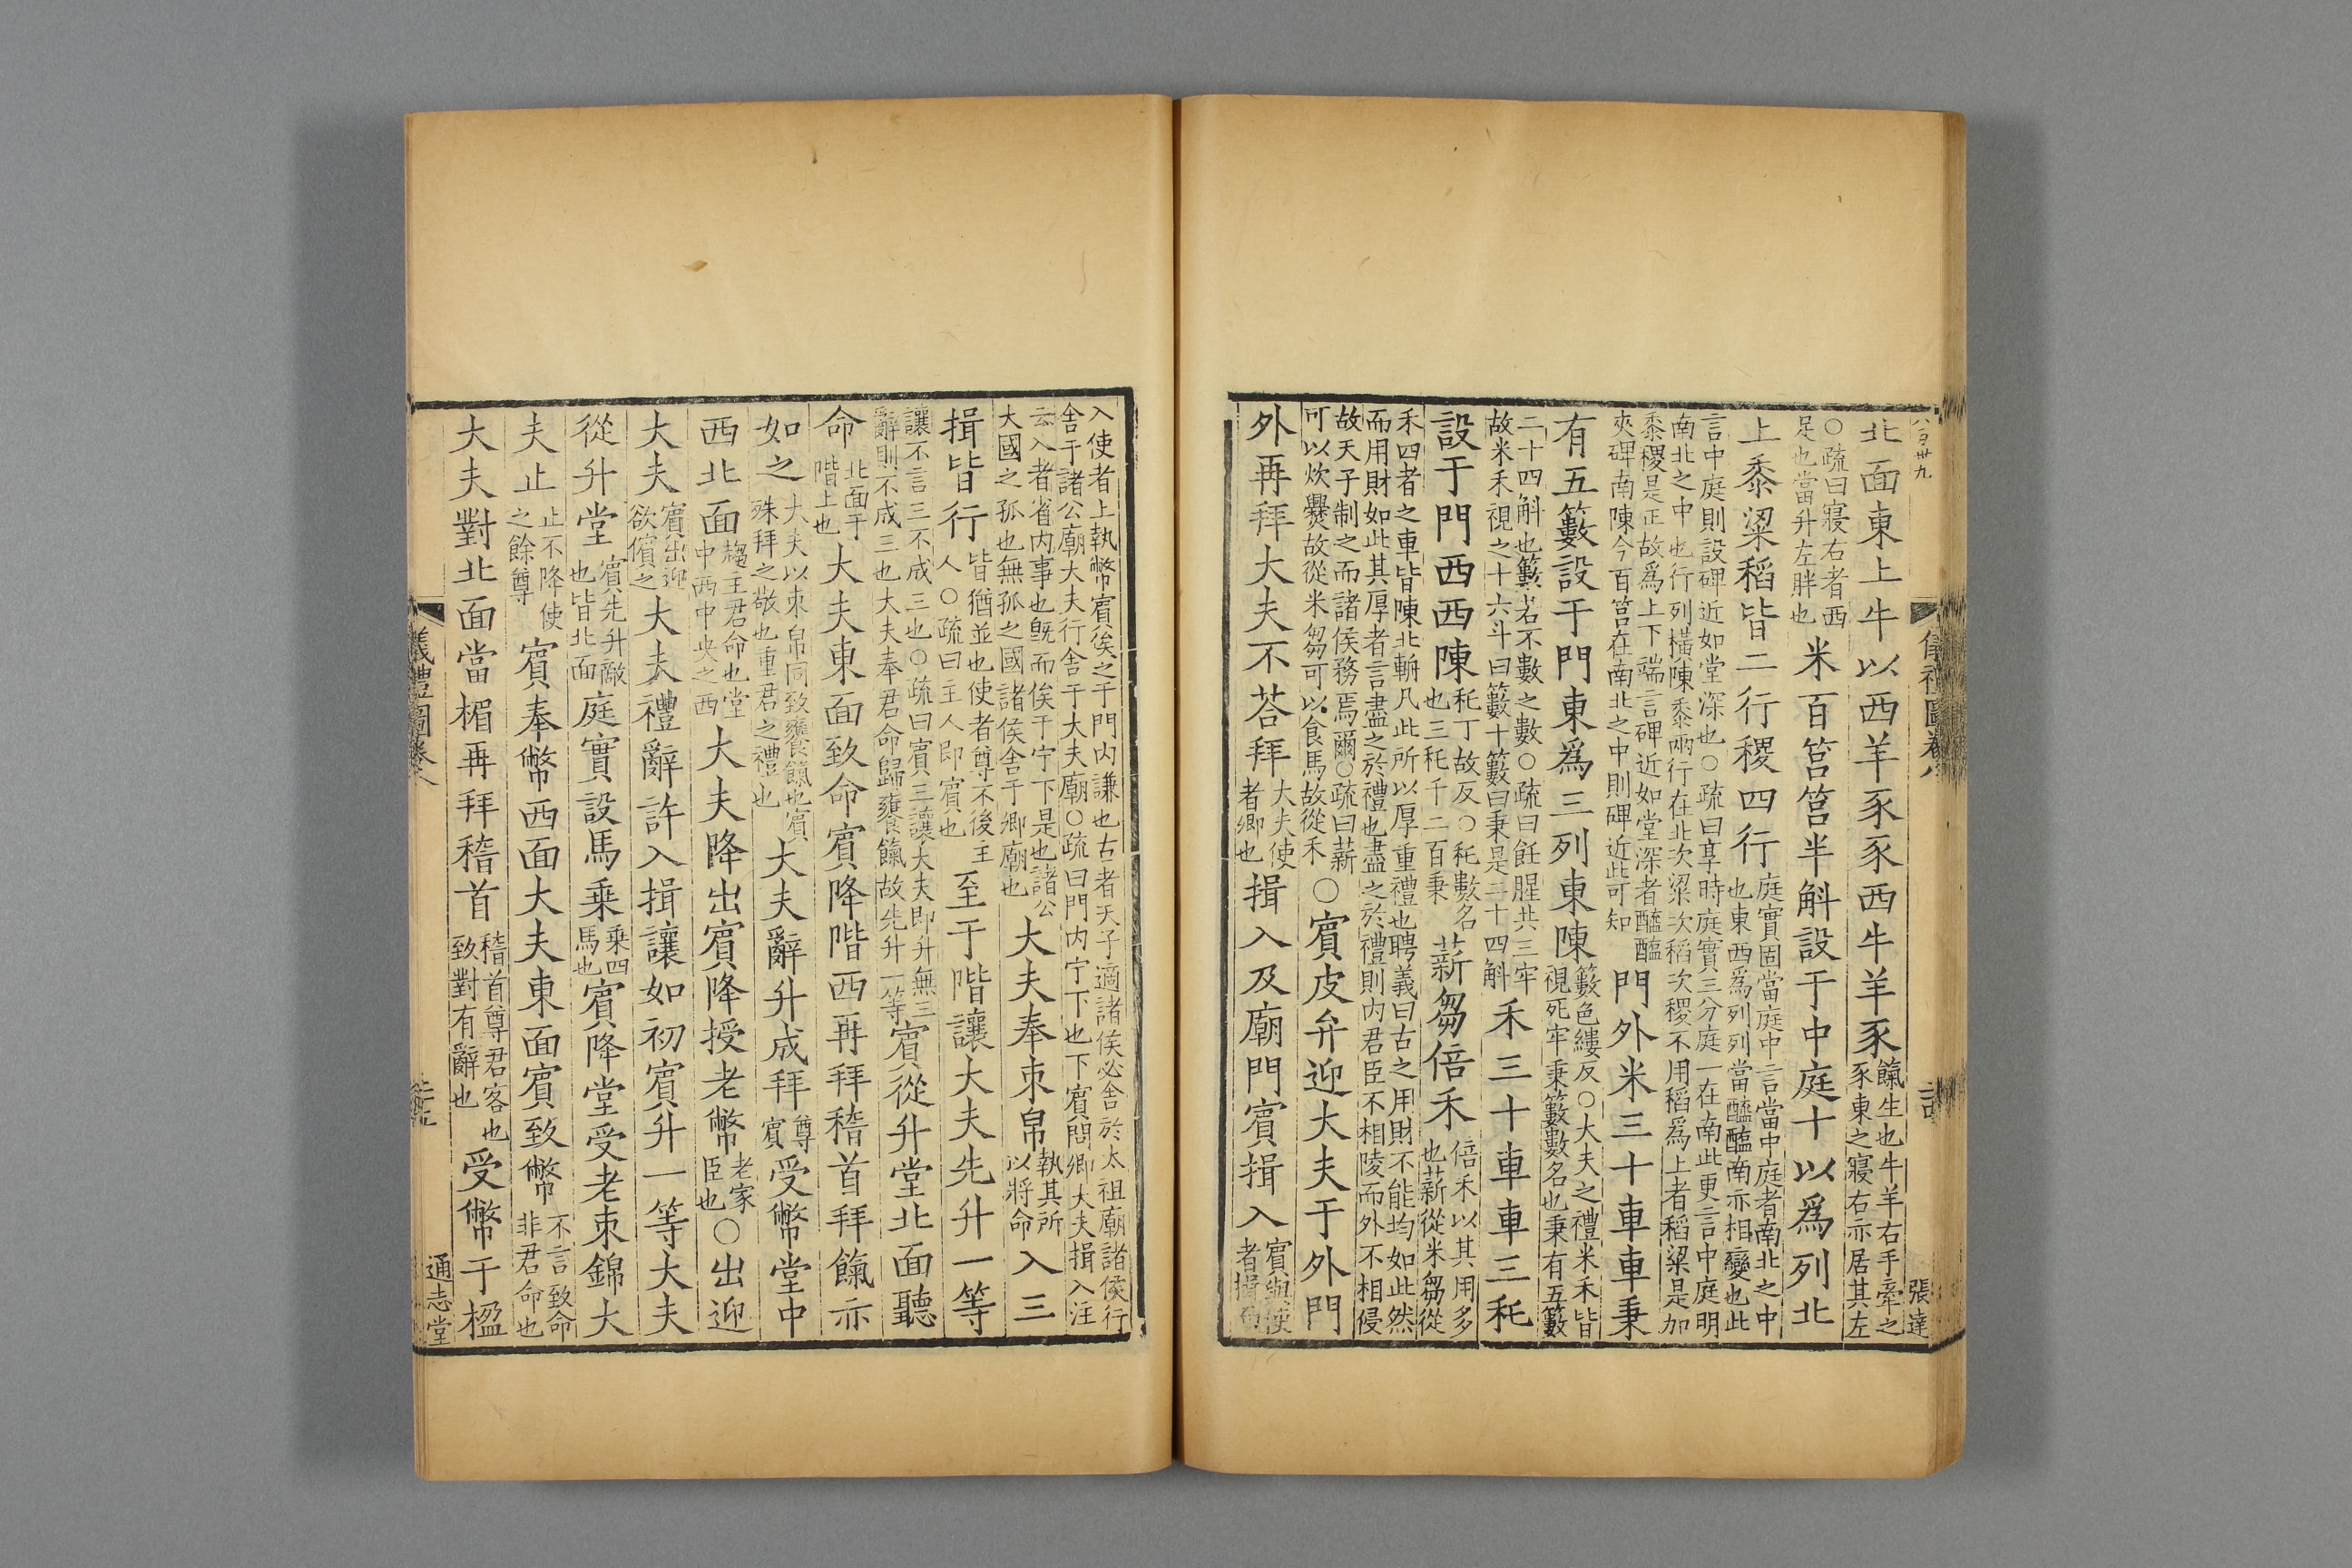 八百卅九
儀禮圖卷八
張達
北面東上牛以西羊豕豕西牛羊豕餼生也牛羊右手牽之豕東之寢右亦居其左
○疏曰寢右者西足也當升左胖也米百筥筥半斛設于中庭十以爲列北
上黍粱稻皆二行稷四行庭實固當庭中言當中庭者南北之中也東西爲列列當醯醢南亦相變也此
言中庭則設碑近如堂深也○疏曰享時庭實三分庭一在南此更言中庭明南北之中也行列橫陳黍兩行在北次粱次稻次稷不用稻爲上者稻粱是加
黍稷是正故爲上下端言碑近如堂深者醯醢夾碑南陳今百筥在南北之中則碑近此可知門外米三十車車秉
有五籔設于門東爲三列東陳籔色縷反○大夫之禮米禾皆視死牢秉籔數名也秉有五籔
二十四斛也籔若不數之數○疏曰飪腥共三牢故米禾視之十六斗曰籔十籔曰秉是二十四斛禾三十車車三秅
設于門西西陳秅丁故反○秅數名也三秅千二百秉薪芻倍禾倍禾以其用多也薪從米芻從
禾四者之車皆陳北輈凡此所以厚重禮也聘義曰古之用財不能均如此然而用財如此其厚者言盡之於禮也盡之於禮則内君臣不相陵而外不相侵
故天子制之而諸侯務焉爾○疏曰薪可以炊爨故從米芻可以食馬故從禾○賓皮弁迎大夫于外門
外再拜大夫不荅拜大夫使者卿也揖入及廟門賓揖入賓與使者揖而
入使者止執幣賓俟之于門内謙也古者天子適諸侯必舍於太祖廟諸侯行舍于諸公廟大夫行舍于大夫廟○疏曰門内宁下也下賓問卿大夫揖入注
云入者省内事也旣而俟于宁下是也諸公大國之孤也無孤之國諸侯舍于卿廟也大夫奉束帛執其所以將命入三
揖皆行皆猶並也使者尊不後主人○疏曰主人即賓也至于階讓大夫先升一等
讓不言三不成三也○疏曰賓三讓大夫即升無三辭則不成三也大夫奉君命歸饔餼故先升一等賓從升堂北面聽
命北面于階上也大夫東面致命賓降階西再拜稽首拜餼亦
如之大夫以束帛同致饔餼也賓殊拜之敬也重君之禮也大夫辭升成拜尊賓受幣堂中
西北面趨主君命也堂中西中央之西大夫降出賓降授老幣老家臣也○出迎
大夫賓出迎欲儐之大夫禮辭許入揖讓如初賓升一等大夫
從升堂賓先升敵也皆北面庭實設馬乘乘四馬也賓降堂受老束錦大
夫止止不降使之餘尊賓奉幣西面大夫東面賓致幣不言致命非君命也
大夫對北面當楣再拜稽首稽首尊君客也致對有辭也受幣于楹
儀禮圖卷八
通志堂